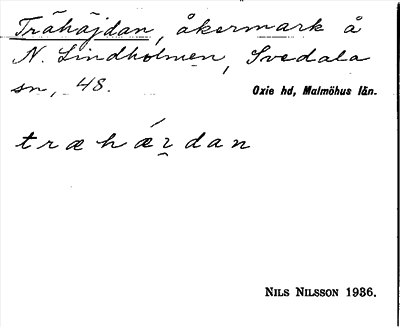 Trähäjdan, åkermark å
N. Lindholmen, Svedala
sn, 48.
Oxie hd, Malmöhus län.
træhǽɪ̯dan
NILS NILSSON 1936.